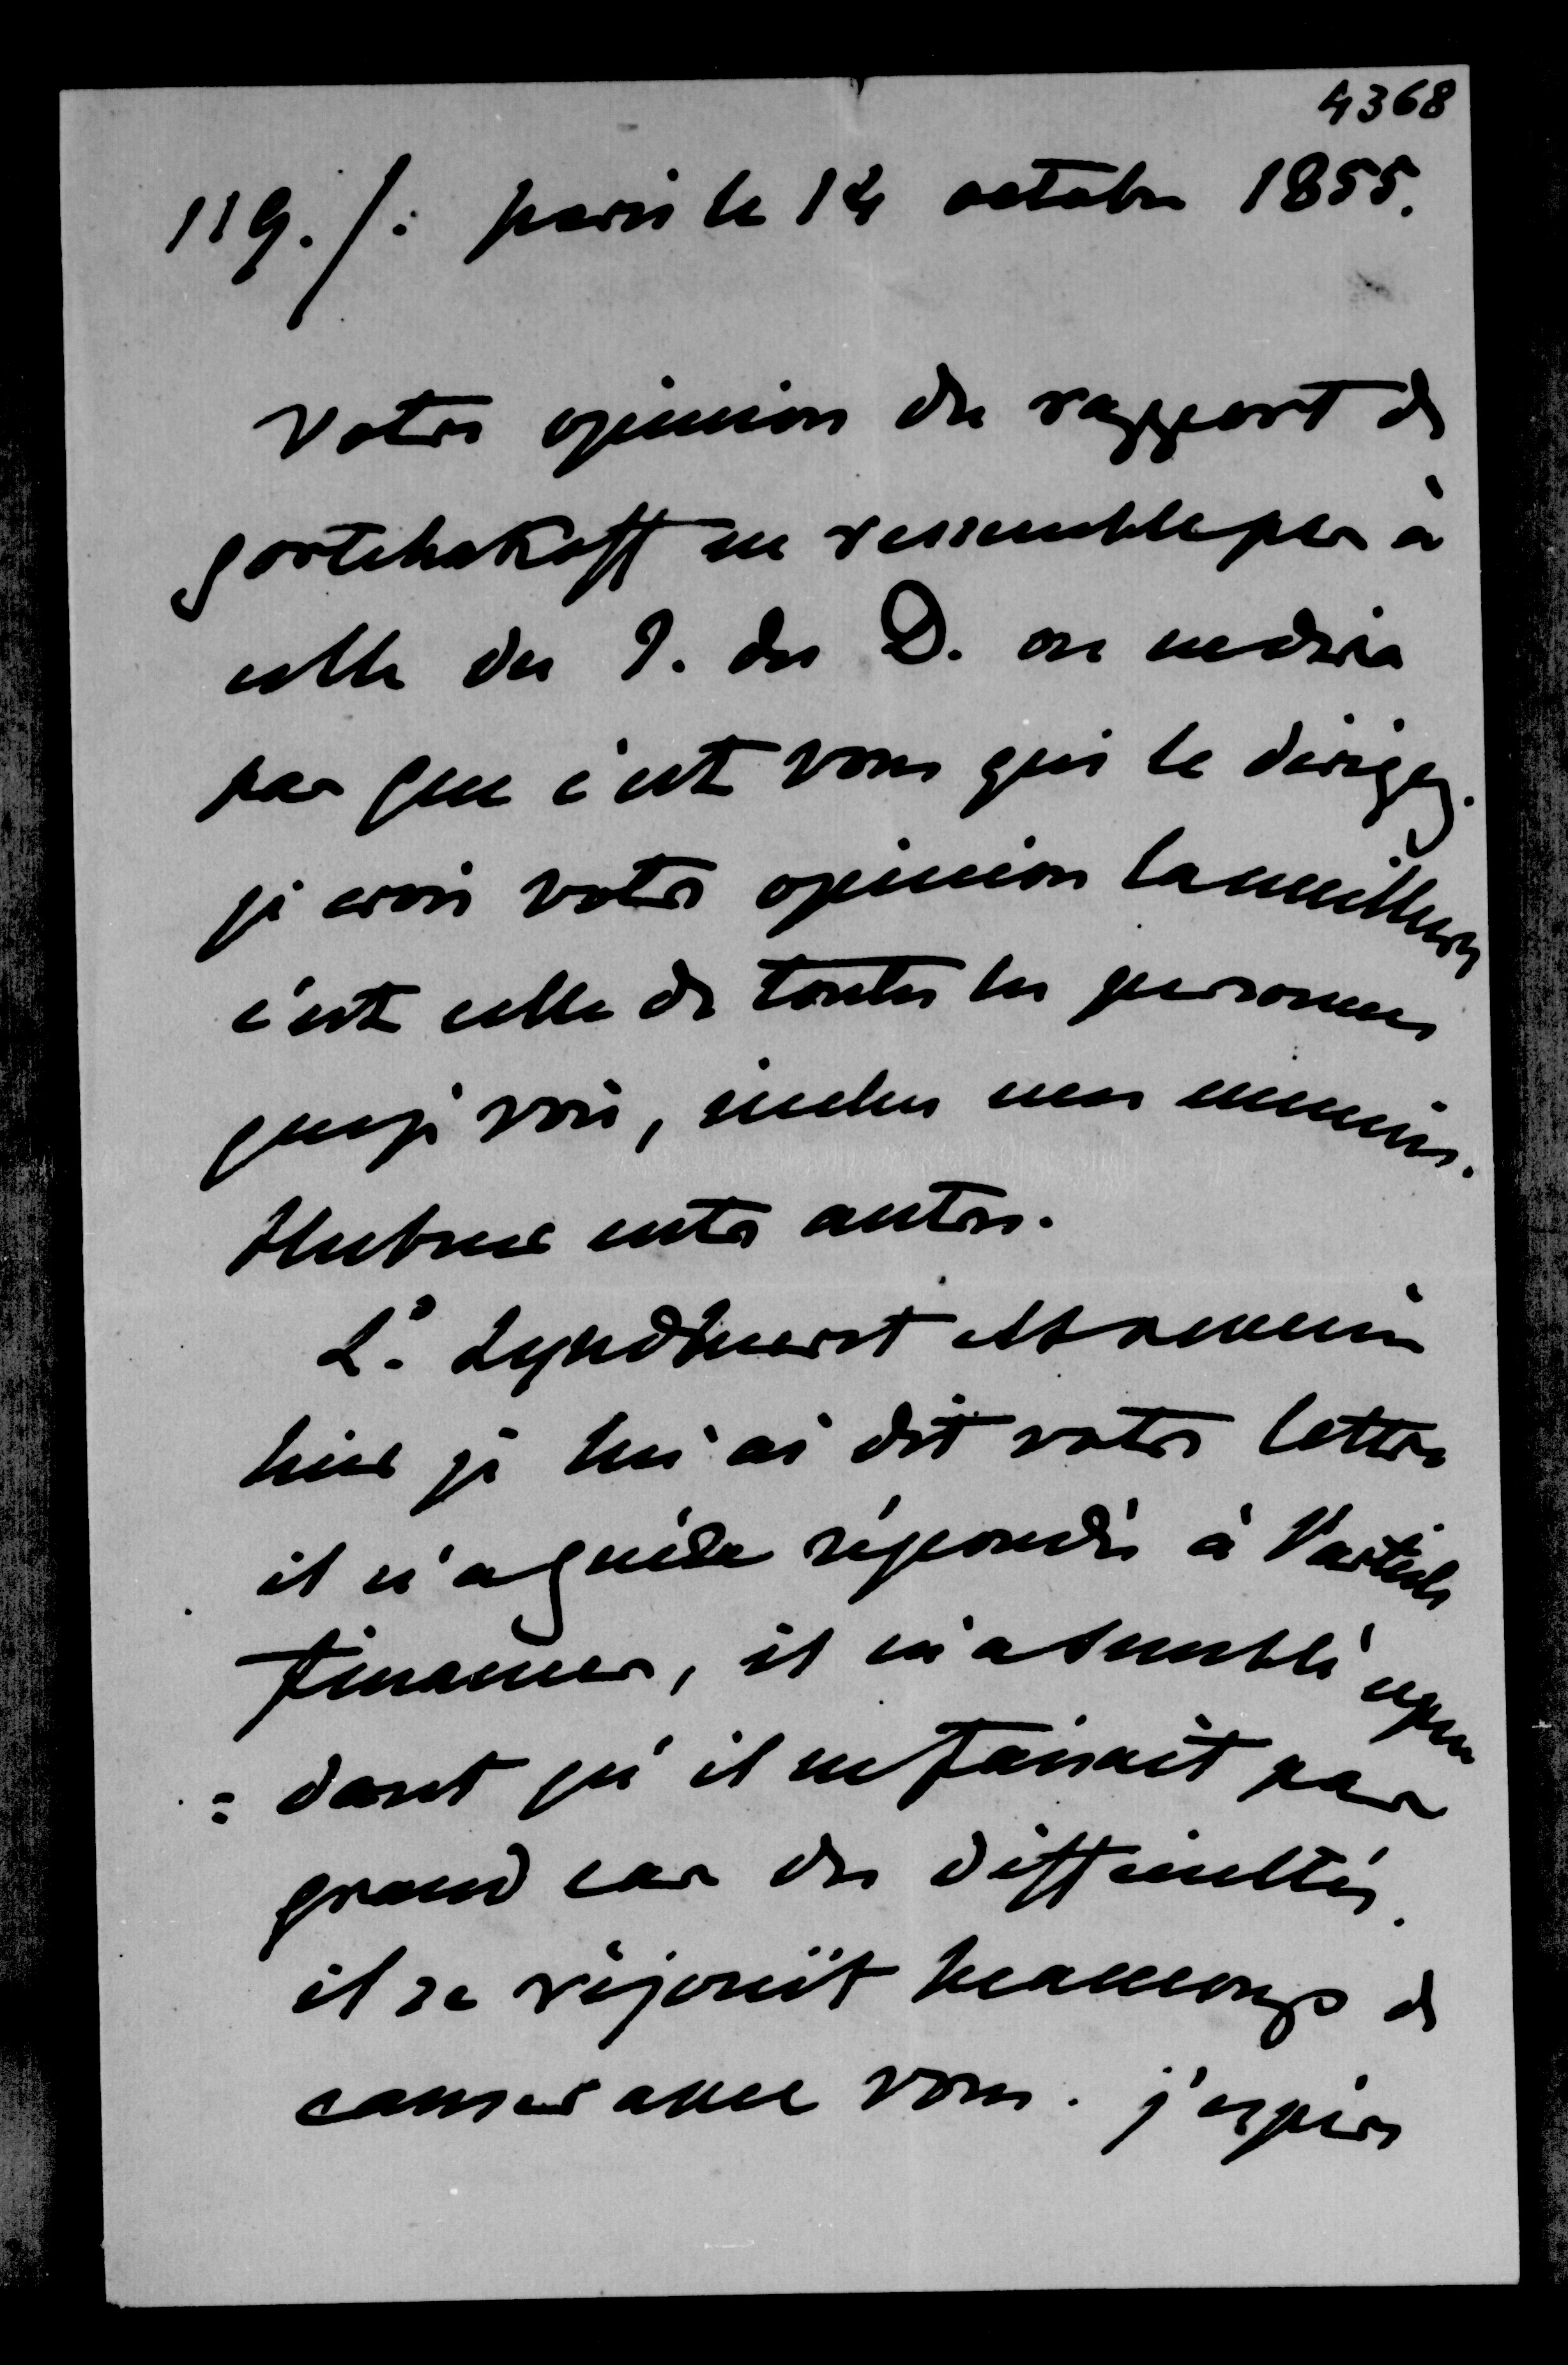 4368
119./: paris le 14 octobre 1855.
Votre opinion du rapport de
gortchakoff ne ressemble pas à
celle du J. des D. on ne dira
pas que c'est vous qui le dirigez.
je crois votre opinion la meilleure
c'est celle de toutes les personnes
que je vois, inclus nos ennemis.
Hubner entre autres.
Ld. Lyndhurst est venu
hier je lui ai dit votre lettre
il n'a guère répondu à l'article
finances, il m'a semblé cepen
= dant qu'il ne faisait pas
grand cas des difficultés.
il se réjouit beaucoup de
causer avec vous. j'espère